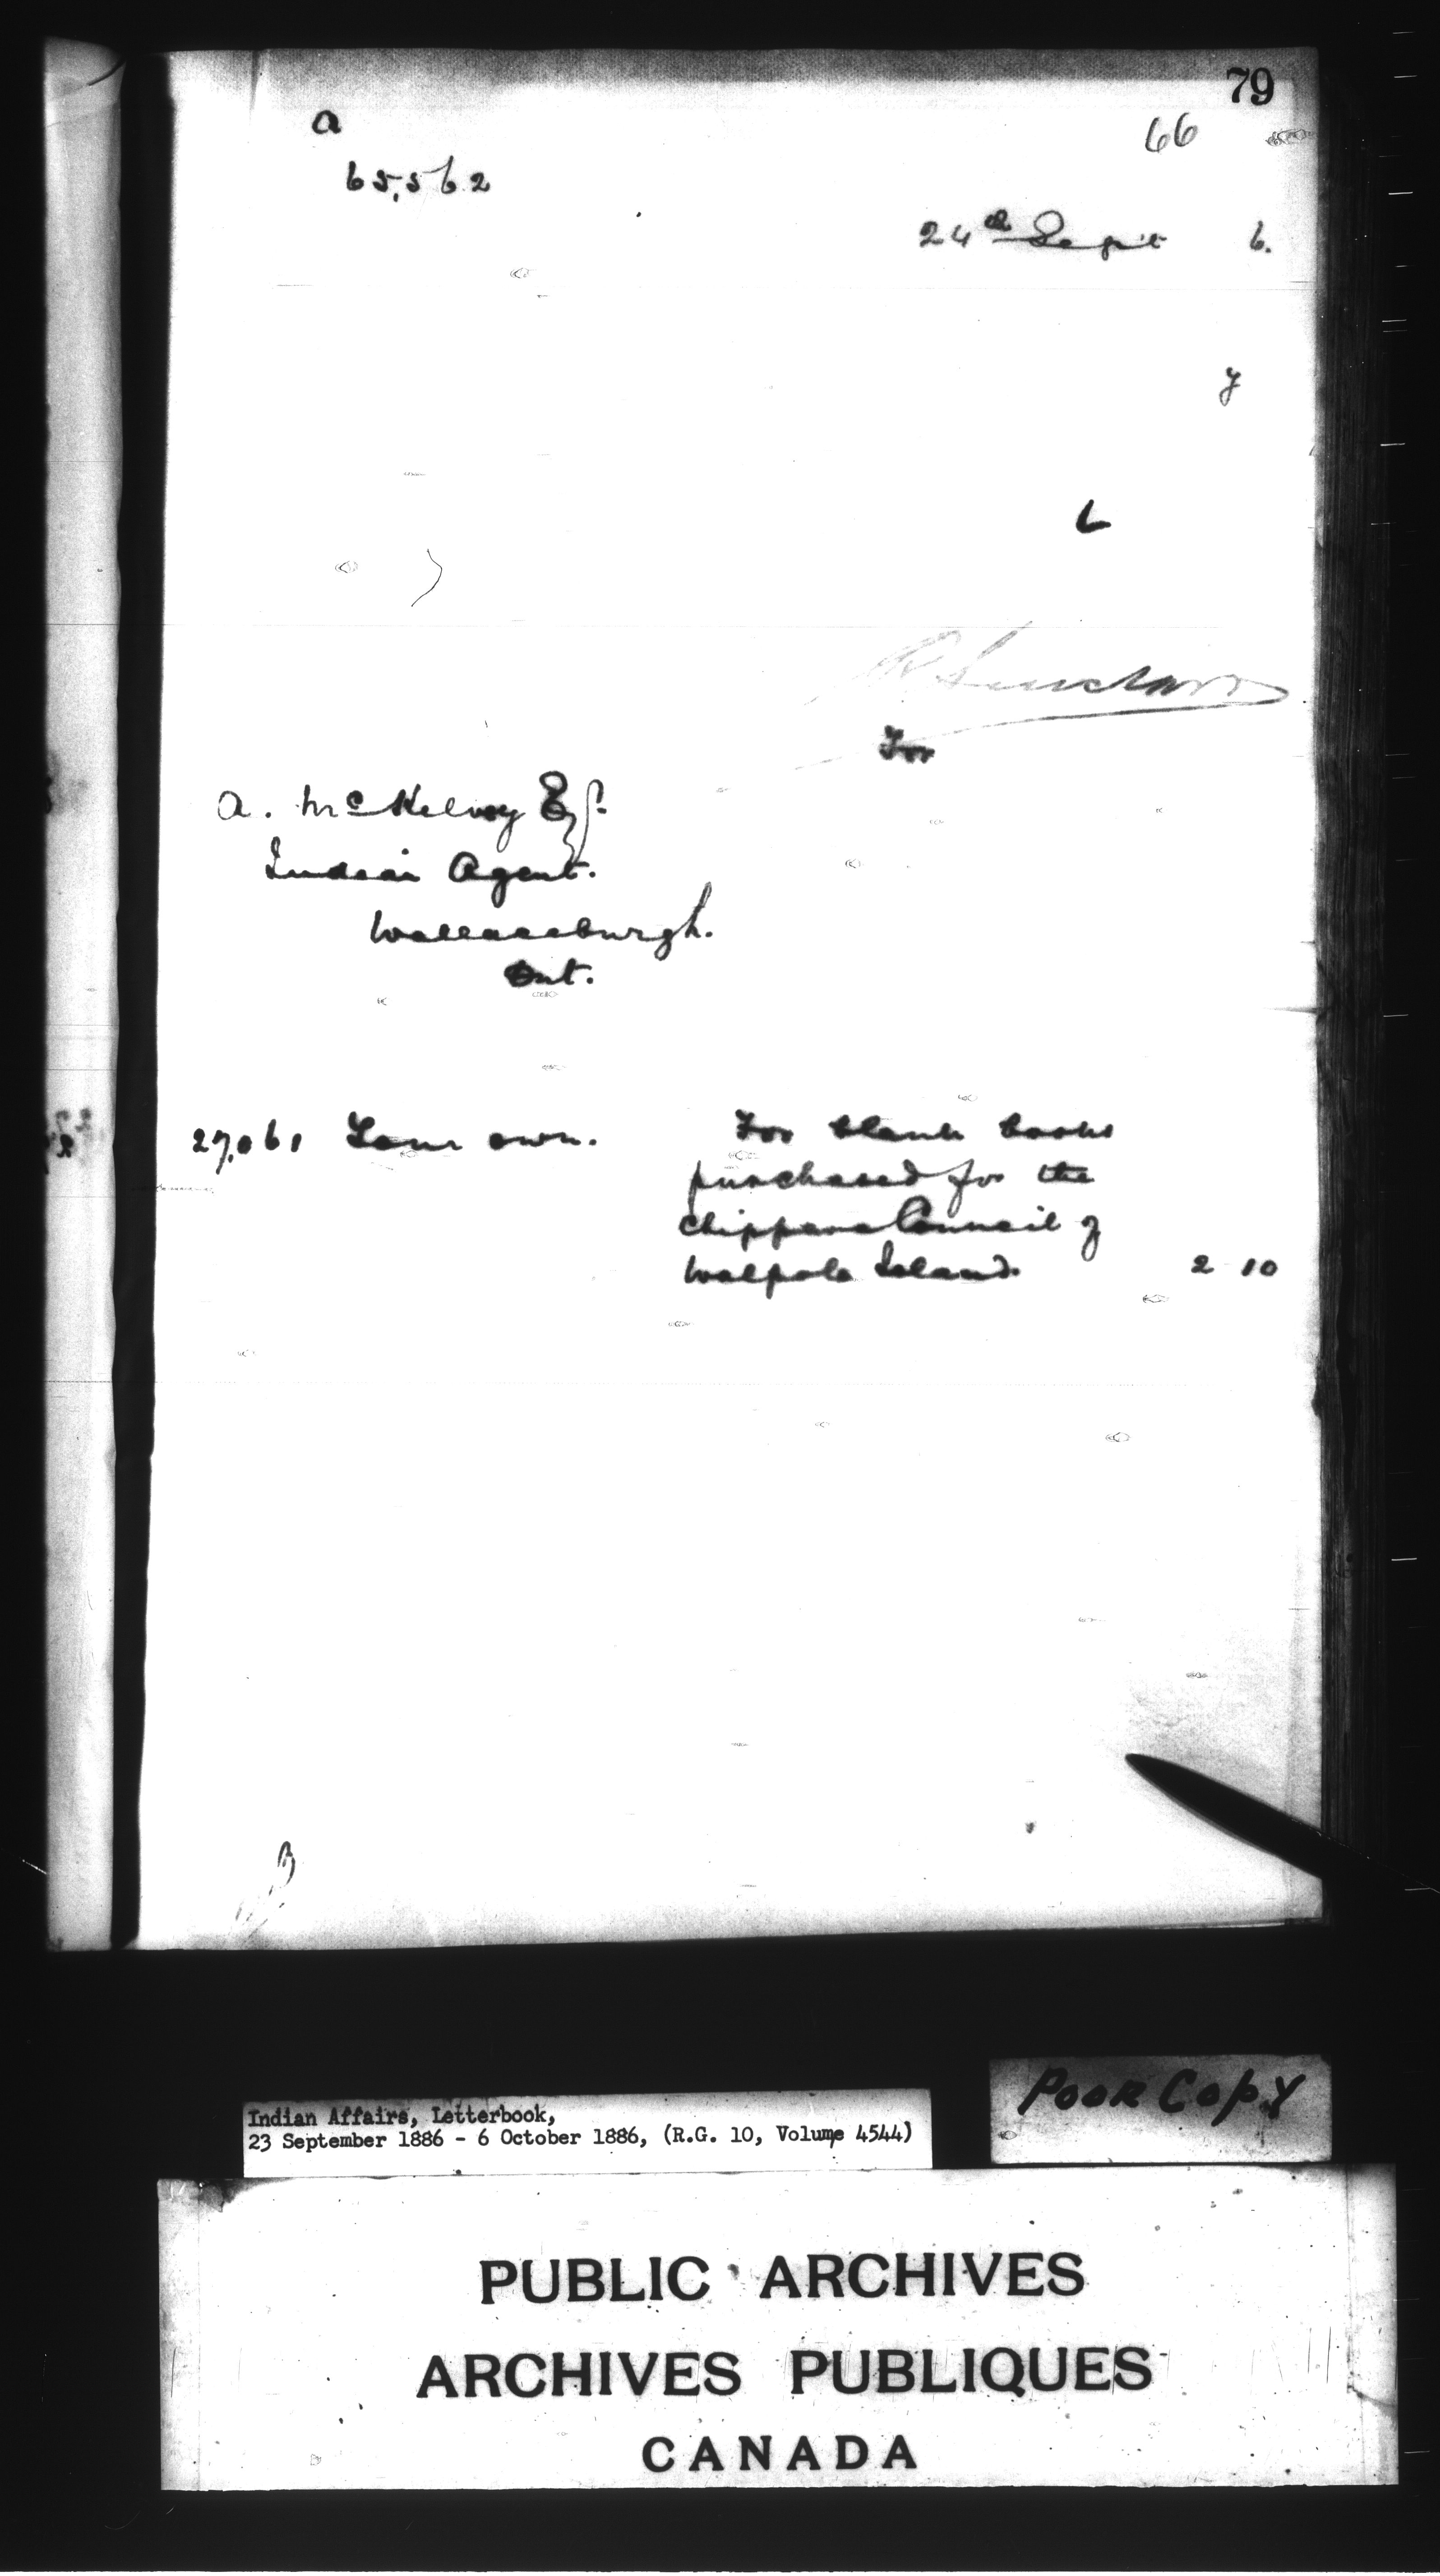 79
a
66
65,562
24th Sept 6.
y
L
R Sinclair
For
A. McKelvey Esq.
Indian Agent.
Wallaceburgh.
Ont.
27,061 Your own. For blank books
purchased for the
Chippewa Council of
Walpole Island. 2 10
Indian Affairs, Letterbook,
23 September 1886 - 6 October 1886, (R.G. 10, Volume 4544)
Poor Copy
PUBLIC ARCHIVES
ARCHIVES PUBLIQUES
CANADA